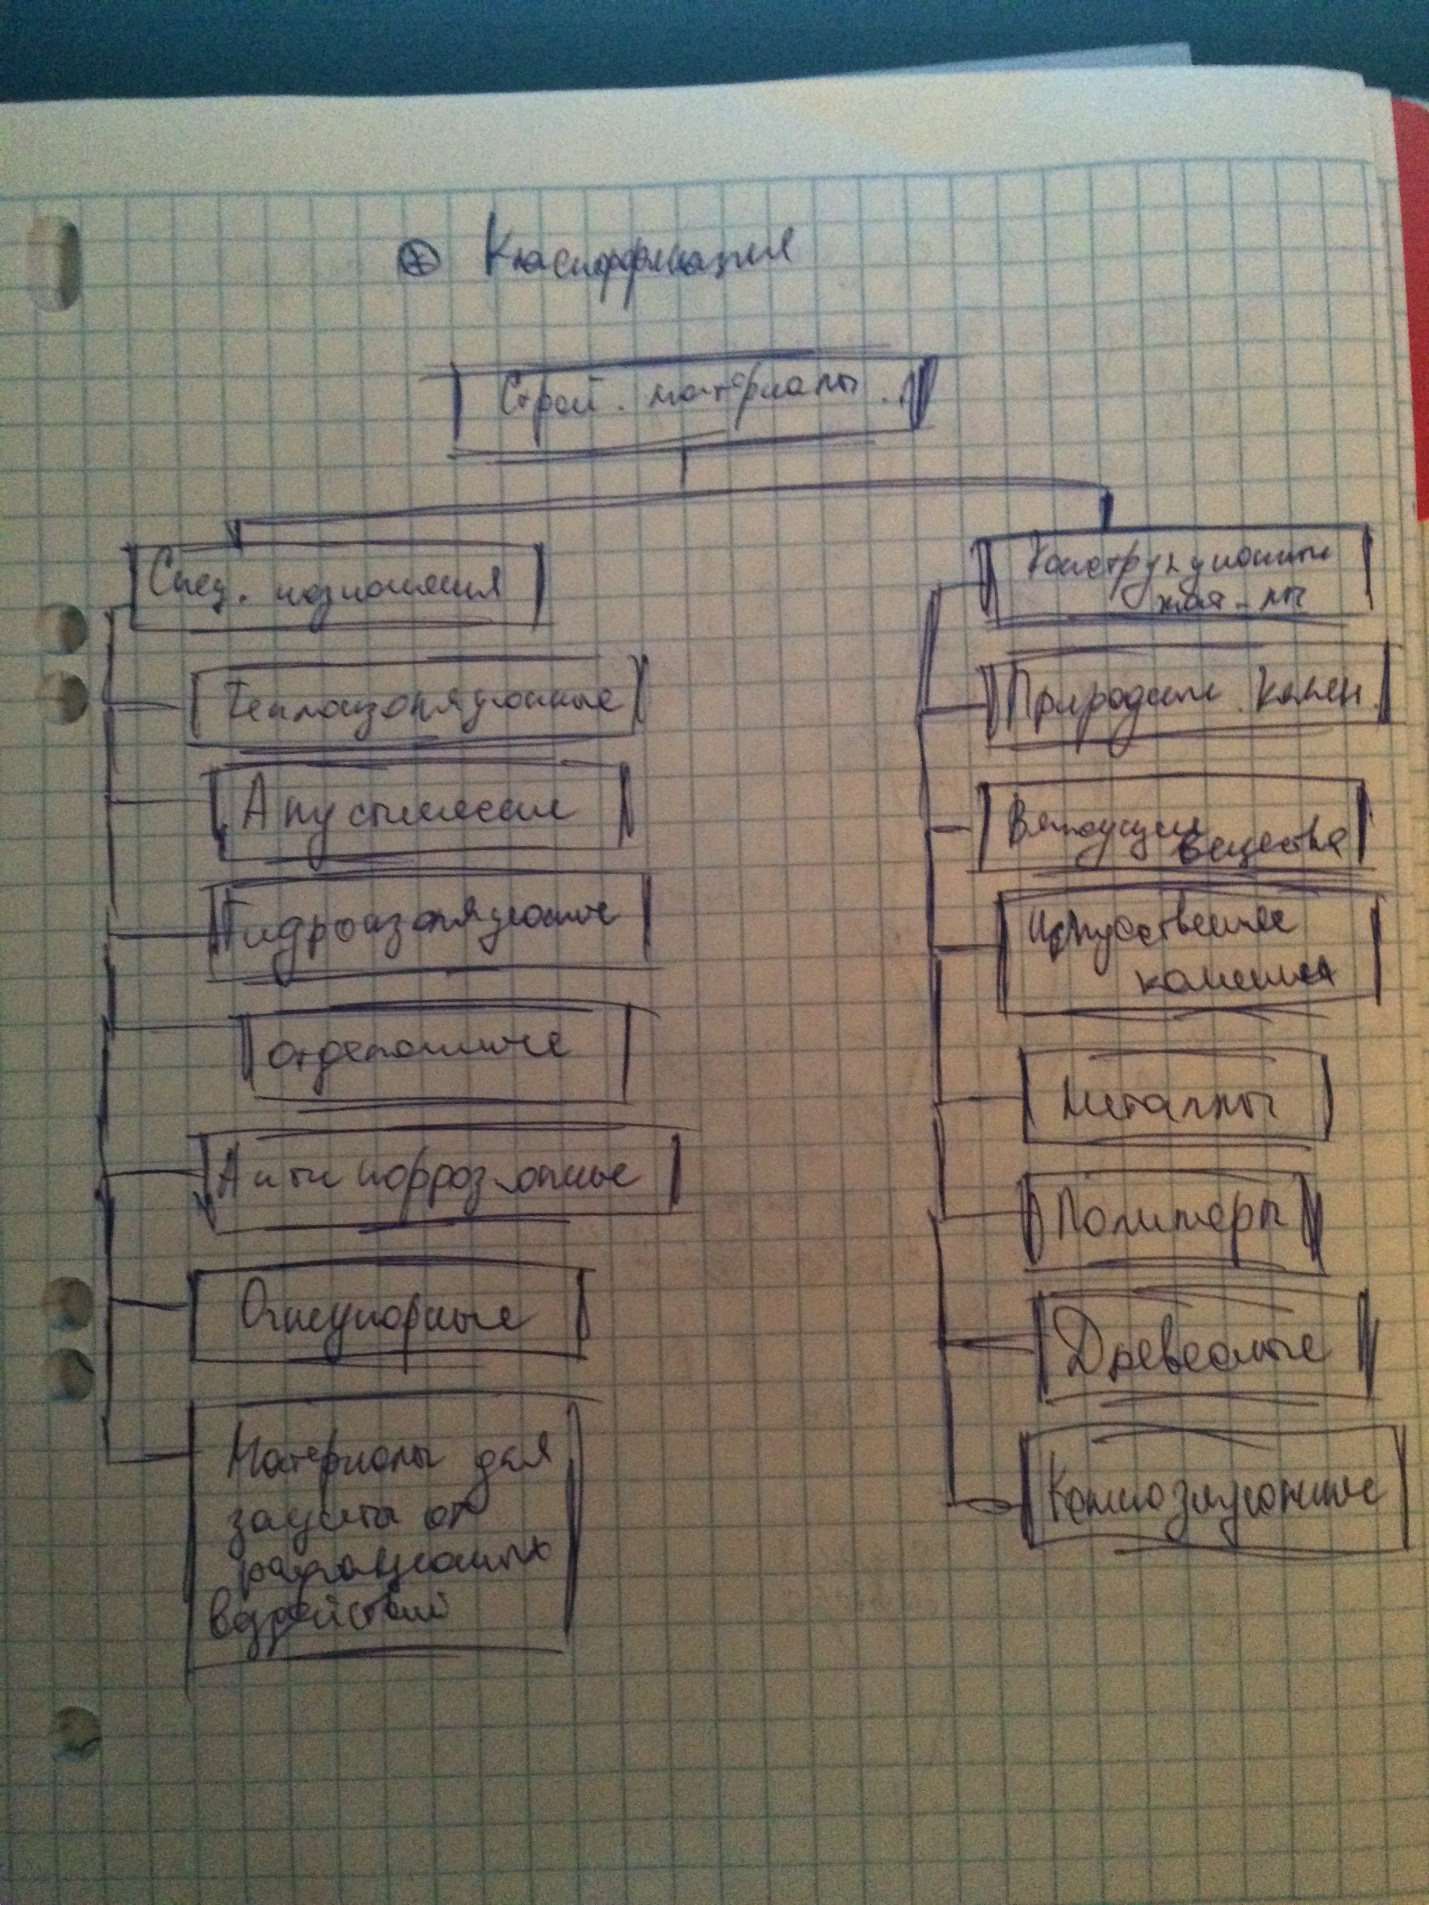 Классификация
Строй. материалы.
Спец. назначения
Теплоизоляционные
Акустические
Гидроизоляционные
отделочные
Антикоррозионные
Огнеупорные
Материалы для
защиты от
радиационных
воздействий
Конструкционные
мат-лы
Природные камен.
Вяжущие
вещества
Искусственные
каменные
Металлы
Полимеры
Древесные
Композиционные